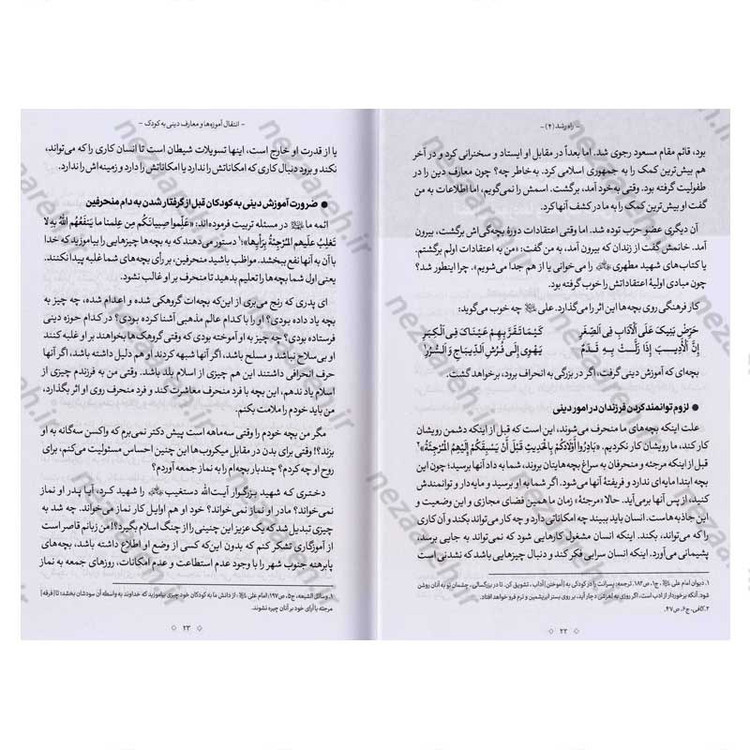 - راه رشد (۴) -
بود، قائم مقام مسعود رجوی شد. اما بعداً در مقابل او ایستاد و سخنرانی کرد و در آخر
هم بیش‌ترین کمک را به جمهوری اسلامی کرد. به خاطر چه؟ چون معارف دین را در
طفولیت گرفته بود. وقتی به‌خود آمد، برگشت. اسمش را نمی‌گویم، اما اطلاعات به من
گفت او بیش‌ترین کمک را به ما در کشف آنها کرد.
آن دیگری عضو حزب توده شد. اما وقتی اعتقادات دورهٔ بچه‌گی‌اش برگشت، بیرون
آمد. خانمش گفت: از زندان که بیرون آمد، به من گفت: «من به اعتقادات اولم برگشتم.
یا کتاب‌های شهید مطهری را می‌خوانی یا از هم جدا می‌شویم». چرا اینطور شد؟
چون مبادی اولیهٔ اعتقاداتش را خوب گرفته بود.
کار فرهنگی روی بچه‌ها این اثر را می‌گذارد. علی چه خوب می‌گوید:
حَرِّضْ بَنِيكَ عَلَى الْآدَابِ فِي الصِّغَرِ کَیْمَا تَقَرَّ بِهِمْ عَیْنَاكَ فِي الْکِبَرِ
إِنَّ الْأَدِیبَ إِذَا زَلَّتْ بِهِ قَدَمٌ یَهْوِي إِلَی فُرُشِ الدِّیبَاجِ وَ السُّرُرِ۱
بچه‌ای که آموزش دینی گرفت، اگر در بزرگی به انحراف برود، برخواهد گشت.
● لزوم توانمند کردن فرزندان در امور دینی
علت اینکه بچه‌های ما منحرف می‌شوند، این است که قبل از اینکه دشمن رویشان
کار کند، ما رویشان کار نکردیم. «بَادِرُوا أَوْلَادَکُمْ بِالْحَدِیثِ قَبْلَ أَنْ یَسْبِقَکُمْ إِلَیْهِمُ الْمُرْجِئَةُ»۲
قبل از اینکه مرجئه و منحرفان به سراغ بچه‌هایتان بروند، شما به داد آنها برسید؛ چون این
بچه ابتدا مایه‌ای ندارد و فریفتهٔ آنها می‌شود. اگر شما به او برسید و مایه‌دار و توانمندش
کنید، از پس آنها برمی‌آید. حالا «مرجئهٔ» زمان ما همین فضای مجازی و این وضعیت و
این جاذبه‌هاست. انسان باید ببیند چه امکاناتی دارد و چه کار می‌تواند بکند و آن کاری
که می‌تواند، بکند. اینکه انسان مشغول کارهایی شود که نمی‌تواند به جایی برسد،
پشیمانی می‌آورد. اینکه انسان سرابی فکر کند و دنبال چیزهایی باشد که نشدنی است
۱. دیوان امام علی، ج۱، ص۱۸۳. ترجمه: پسرانت را در کودکی به [آموختن] آداب، تشویق کن. تا در بزرگسالی، چشمان تو به آنان روشن
شود. آنکه برخوردار از ادب است، اگر روزی به لغزش دچار آید، بر روی بستر ابریشمین و نرم فرو خواهد افتاد.
۲. کافی، ج۶، ص۴۷.
۲۲
- انتقال آموزه‌ها و معارف دینی به کودک -
یا از قدرت او خارج است، اینها تسویلات شیطان است تا انسان کاری را که می‌تواند،
نکند و برود دنبال کاری که امکاناتش را ندارد یا امکاناتش را دارد و زمینه‌اش را ندارد.
● ضرورت آموزش دینی به کودکان قبل از گرفتار شدن به دام منحرفین
ائمه ما در مسئله تربیت فرموده‌اند: «عَلِّموا صِبیانَکُم مِن عِلمِنا ما یَنفَعُهُمُ اللهُ بِهِ لا
تَغلِبُ عَلَیهِمُ المُرجِئَةُ بِرَأیِها»۱ دستور می‌دهند که به بچه‌ها چیزهایی را بیاموزید که خدا
با آن به آنها نفع ببخشد. مواظب باشید منحرفین، بر رأی بچه‌های شما غلبه پیدا نکنند.
یعنی اول شما بچه‌ها را تعلیم بدهید تا منحرف بر او غالب نشود.
ای پدری که رنج می‌بری از این‌که بچه‌ات گروهکی شده و اعدام شده، چه چیز به
بچه یاد داده بودی؟ او را با کدام عالم مذهبی آشنا کرده بودی؟ در کدام حوزه دینی
فرستاده بودی؟ چه چیز به او آموخته بودی که وقتی گروهک‌ها بخواهند بر او غلبه کنند
او بی‌سلاح نباشد و مسلح باشد. اگر آنها شبهه کردند او هم دلیل داشته باشد. اگر آنها
حرف انحرافی داشتند این هم چیزی از اسلام بلد باشد. وقتی من به فرزندم چیزی از
اسلام یاد ندهم، این بچه با فرد منحرف معاشرت کند و فرد منحرف روی او اثر بگذارد،
من باید خودم را ملامت بکنم.
مگر من بچه خودم را وقتی سه‌ماهه است پیش دکتر نمی‌برم که واکسن سه‌گانه به او
بزند؟! وقتی برای بدن در مقابل میکروب‌ها این چنین احساس مسئولیت می‌کنم، برای
روح او چه کردم؟ چندبار بچه‌ام را به نماز جمعه آوردم؟
دختری که شهید بزرگوار آیت‌الله دستغیب را شهید کرد، آیا پدر او نماز
نمی‌خواند؟ مادر او نماز نمی‌خواند؟ خود او هم اوایل کار نماز می‌خواند. چه شد به
چیزی تبدیل شد که یک عزیز این چنینی را از چنگ اسلام بگیرد؟! من زبانم قاصر است
از آموزگاری تشکر کنم که بدون این‌که کسی از وضع او اطلاع داشته باشد، بچه‌های
پابرهنه جنوب شهر را با وجود عدم استطاعت و عدم امکانات، روزهای جمعه به نماز
۱. وسائل الشیعه، ج۵، ص۱۹۷؛ امام علی: از دانش ما به کودکان خود چیزی بیاموزید که خداوند به واسطه آن سودشان بخشد؛ تا [فرقه]
مرجئه با آرای خود بر آنان چیره نشوند.
۲۳
nezareh.ir